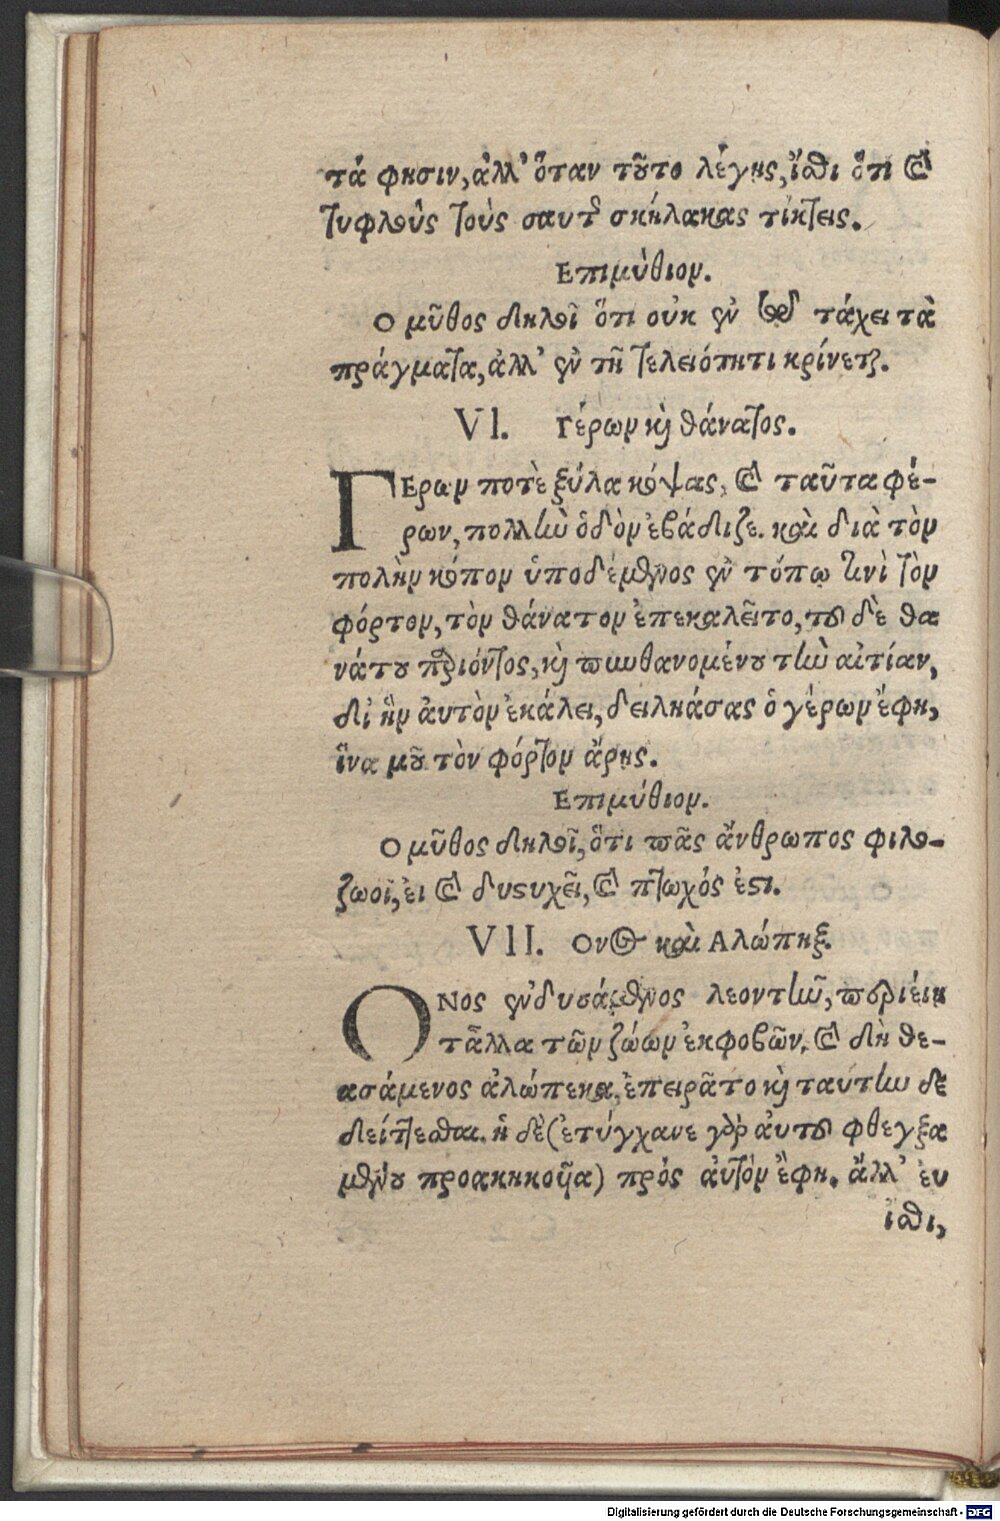 τά φησιν, ἀλλ' ὅταν τοῦτο λέγῃς, ἴσθι ὅτι καὶ
τυφλοὺς τοὺς σαυτῆς σκύλακας τίκτεις.
Επιμύθιον.
Ο μῦθος δηλοῖ ὅτι οὐκ ἐν τῷ τάχει τὰ
πράγματα, ἀλλ' ἐν τῇ τελειότητι κρίνεται.
VI. Γέρων καὶ θάνατος.
ΓΕρων ποτὲ ξύλα κόψας, καὶ ταῦτα φέ-
ρων, πολλὴν ὁδὸν ἐβάδιζε. καὶ διὰ τὸν
πολὴν κόπον ὑποδέμενος ἐν τόπῳ τινὶ τὸν
φόρτον, τὸν θάνατον ἐπεκαλεῖτο, τοῦ δὲ θα
νάτου παριόντος, καὶ πυνθανομένου τὴν αἰτίαν,
δι' ἣν αὐτὸν ἐκάλει, δειλιάσας ὁ γέρων ἔφη,
ἵνα μοῦ τὸν φόρτον ἄρῃς.
Επιμύθιον.
Ο μῦθος δηλοῖ, ὅτι πᾶς ἄνθρωπος φιλο-
ζωοῖ, εἰ καὶ δυστυχεῖ, καὶ πτωχός ἐστι.
VII. Ονος καὶ Αλώπηξ.
ΟΝος ἐνδυσάμενος λεοντῆν, περιῄει
τἆλλα τῶν ζώων ἐκφοβῶν. καὶ δὴ θε-
ασάμενος ἀλώπεκα, ἐπειρᾶτο καὶ ταύτην δε
δείττεσθαι. ἡ δὲ (ἐτύγχανε γὰρ αὐτοῦ φθεγξα
μένου προακηκουῖα) πρός αὐτὸν ἔφη. ἄλλ' εὐ
ἴσθι,
Digitalisierung gefördert durch die Deutsche Forschungsgemeinschaft - DFG